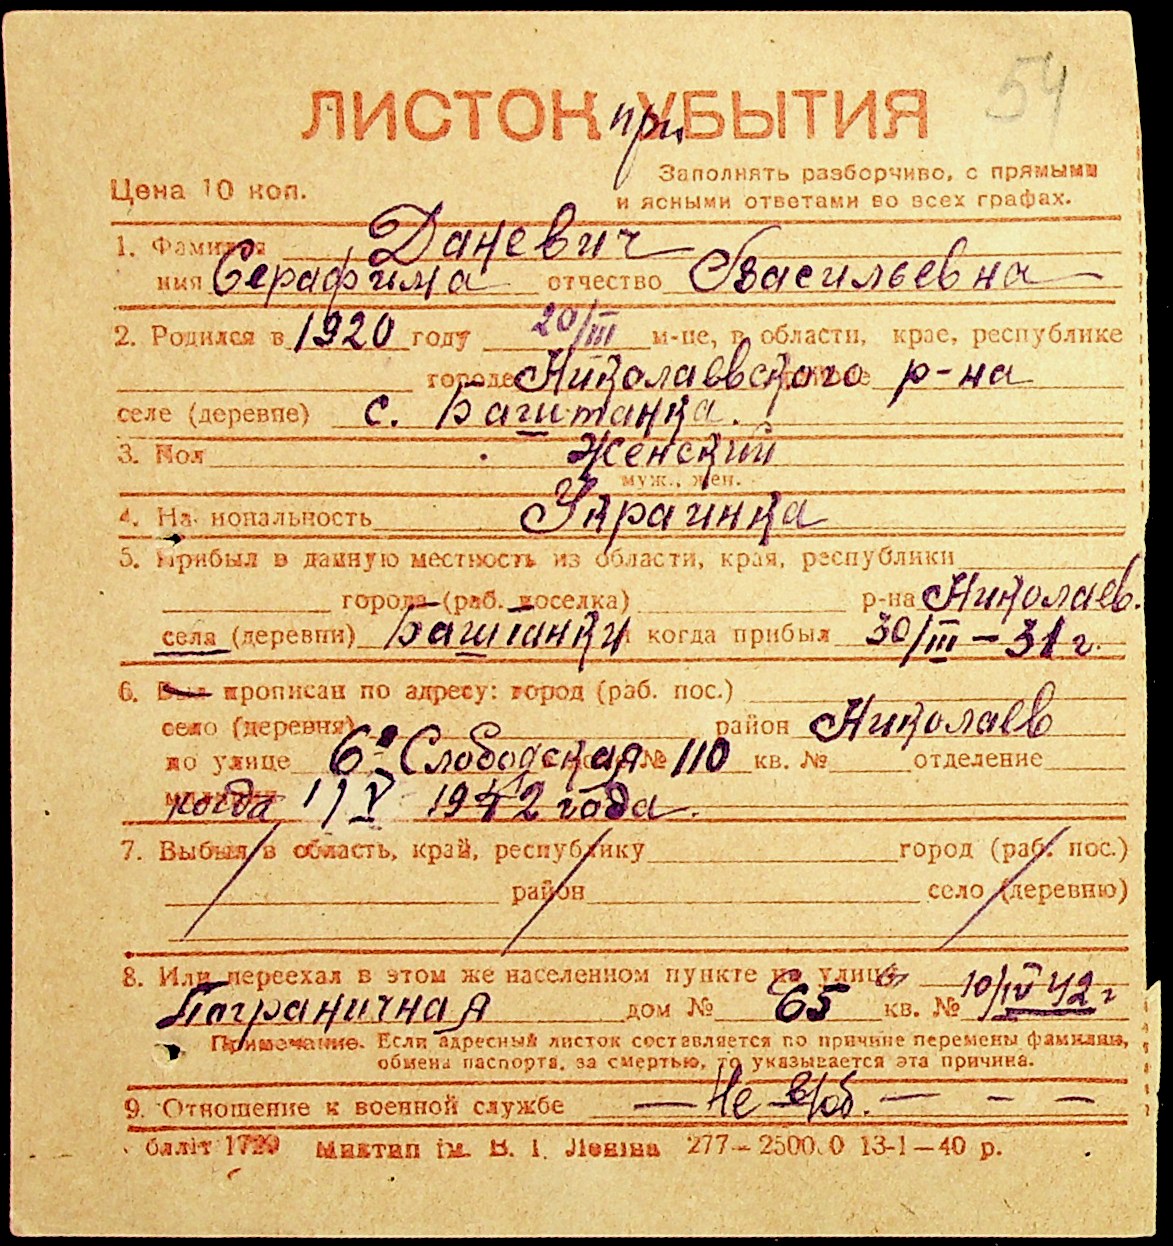 54
ЛИСТОК при УБЫТИЯ
Цена 10 коп.
Заполнять разборчиво, с прямыми
и ясными ответами во всех графах.
1. Фамилия Даневич
имя Серафима отчество Васильевна
2. Родился в 1920 году 20/III м-це, в области, крае, республике
городе Николаевского р-на
селе (деревне) с. Баштанка.
3. Пол Женский
муж., жен.
4. Национальность Украинка
5. Прибыл в данную местность из области, края, республики
города (раб. поселка) р-на Николаев.
села (деревни) Баштанки когда прибыл 30/III – 31 г.
6. Был прописан по адресу: город (раб. пос.)
село (деревня) район Николаев
по улице 6я Слободская № 110 кв. № отделение
когда 1/V 1942 года.
7. Выбыл в область, край, республику город (раб. пос.)
район село (деревню)
8. Или переехал в этом же населенном пункте на улицу 10/IV 42 г
Пограничная дом № 65 кв. №
Примечание. Если адресный листок составляется по причине перемены фамилии,
обмена паспорта, за смертью, то указывается эта причина.
9. Отношение к военной службе — Не в/об. — – – –
1720 Миктип ім. В. І. Леніна 277–25000 13-1–40 р.